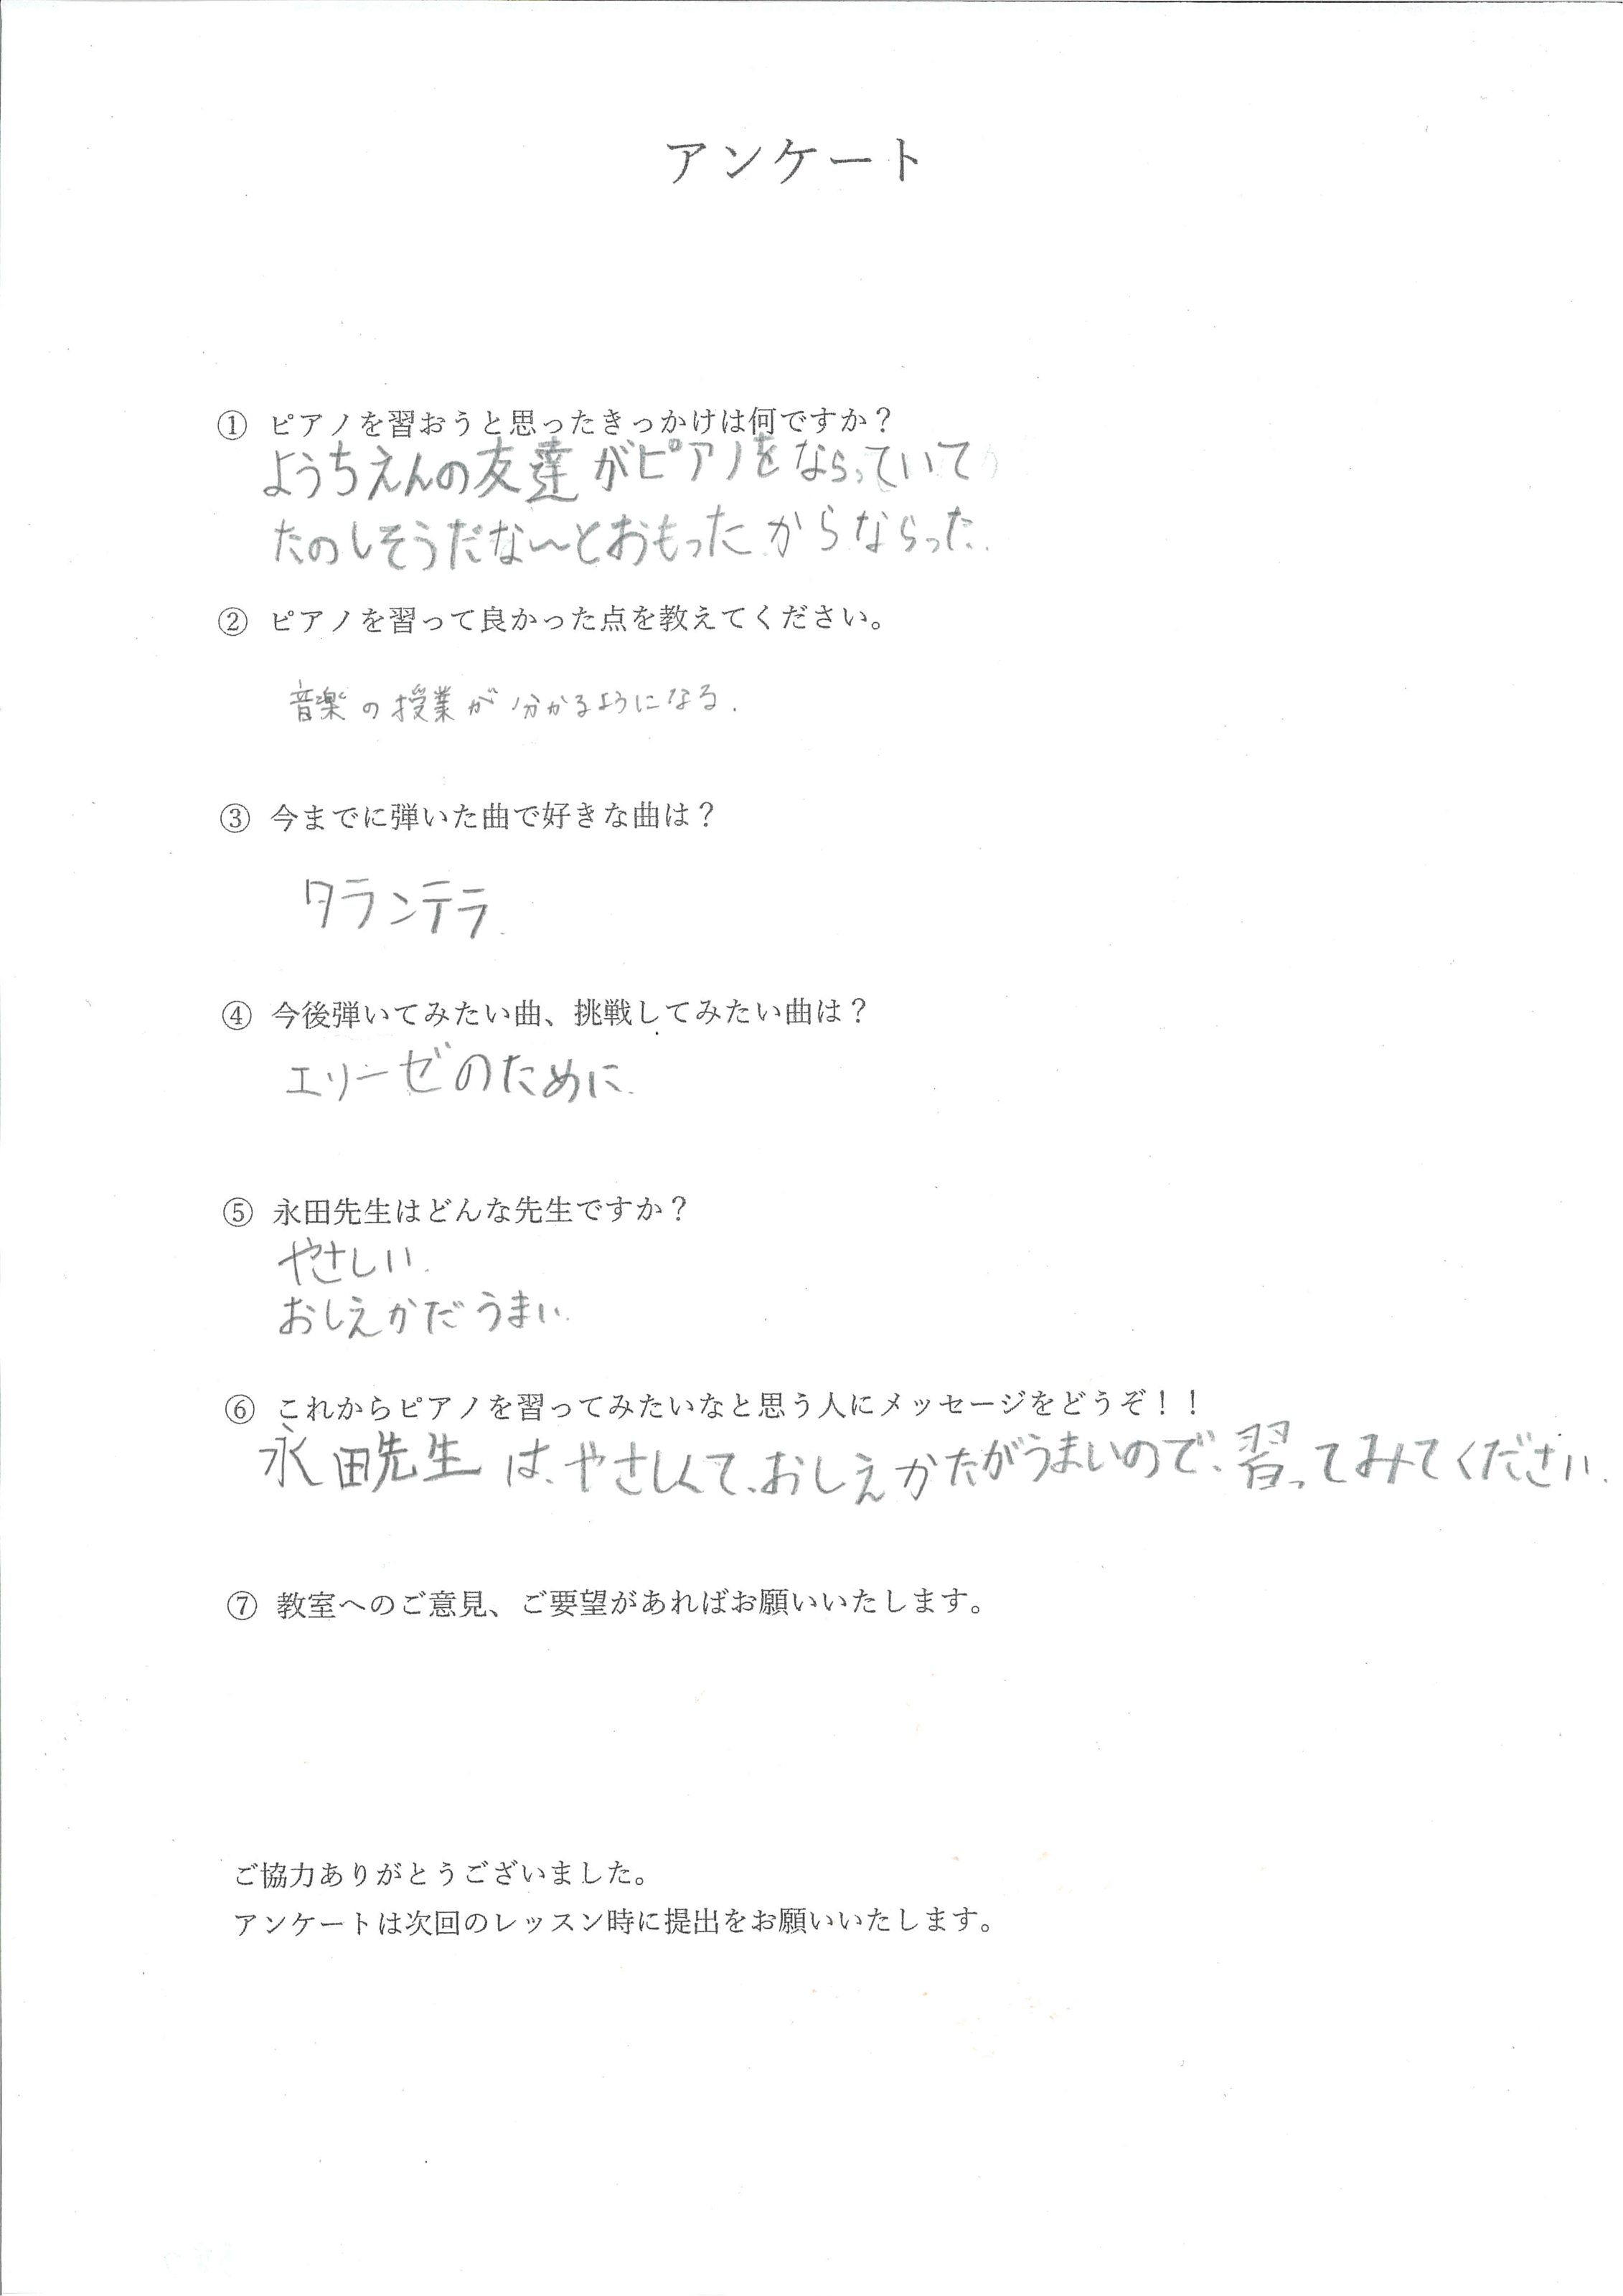 アンケート
① ピアノを習おうと思ったきっかけは何ですか？
ようちえんの友達がピアノをならっていて
たのしそうだな〜とおもったからならった.
② ピアノを習って良かった点を教えてください。
音楽の授業が分かるようになる.
③ 今までに弾いた曲で好きな曲は？
タランテラ.
④ 今後弾いてみたい曲、挑戦してみたい曲は？
エリーゼのために.
⑤ 永田先生はどんな先生ですか？
やさしい.
おしえかだうまい.
⑥ これからピアノを習ってみたいなと思う人にメッセージをどうぞ！！
永田先生は、やさしくて、おしえかたがうまいので、習ってみてください.
⑦ 教室へのご意見、ご要望があればお願いいたします。
ご協力ありがとうございました。
アンケートは次回のレッスン時に提出をお願いいたします。